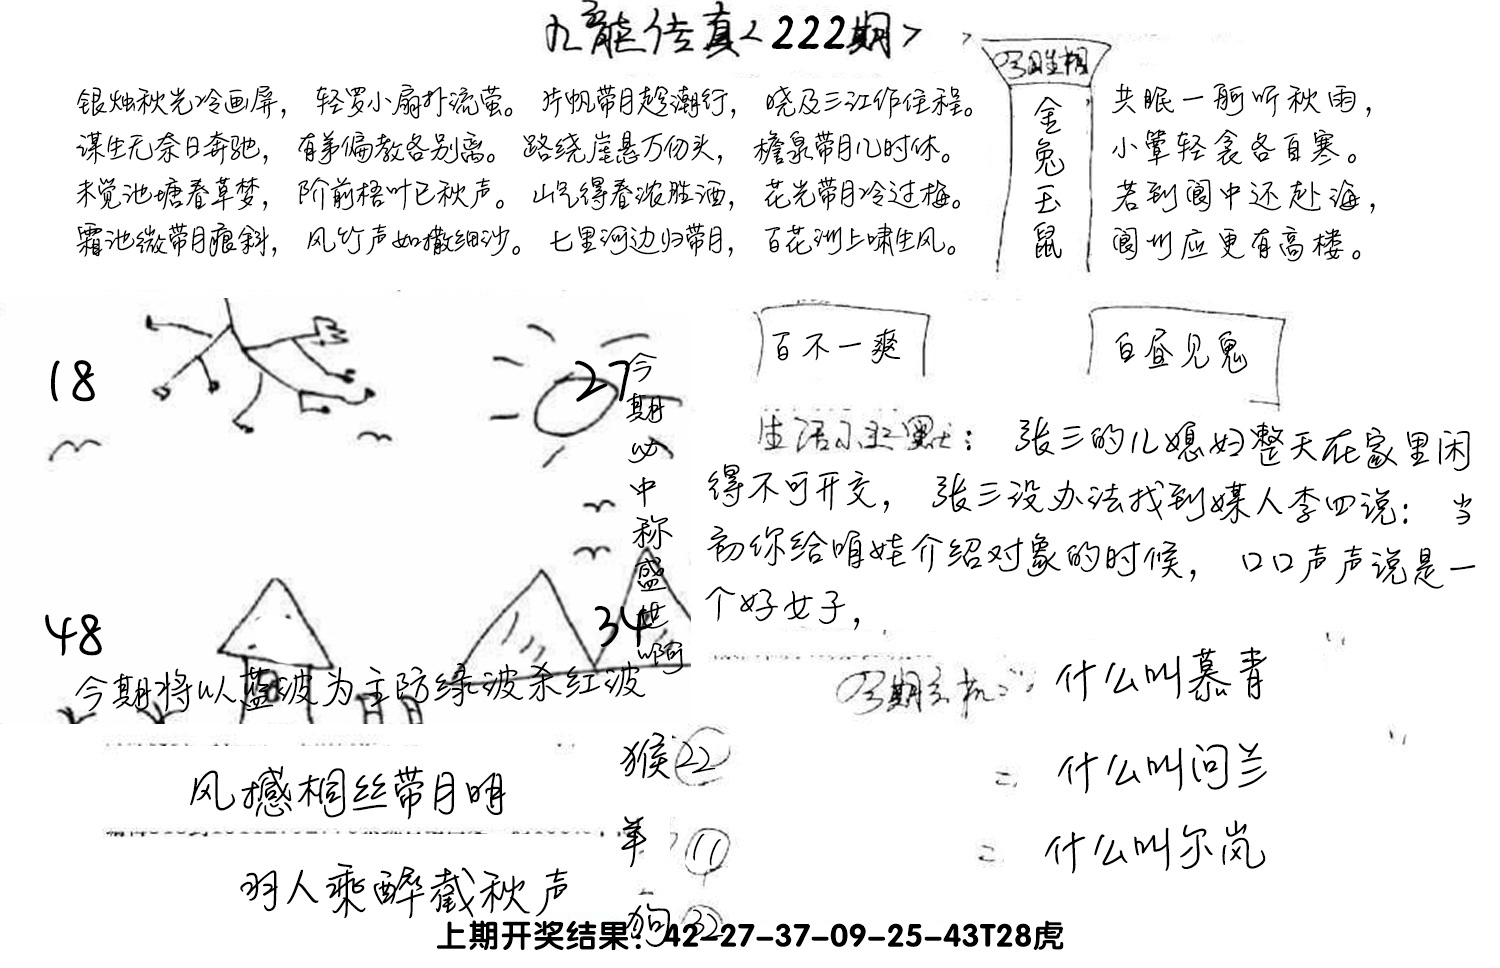 九龙传真<222期>
今期生肖相
银烛秋光冷画屏，轻罗小扇扑流萤。片帆带月趁潮行，晓及三江作住程。
谋生无奈日奔驰，有弟偏教各别离。路绕崖悬万仞头，檐泉带月几时休。
未觉池塘春草梦，阶前梧叶已秋声。山气得春浓胜酒，花光带月冷过梅。
霜池微带月痕斜，风竹声如撒细沙。七里河边归带月，百花洲上啸生风。
金兔玉鼠
共眠一舸听秋雨，
小簟轻衾各自寒。
若到阆中还赴海，
阆州应更有高楼。
18
27
48
34
今期必中称盛世啊
今期将以蓝波为主防绿波杀红波
百不一爽
白昼见鬼
生活小幽默：张三的儿媳妇整天在家里闲
得不可开交，张三没办法找到媒人李四说：当
初你给咱娃介绍对象的时候，口口声声说是一
个好女子，
今期玄机：什么叫慕青
= 什么叫问兰
= 什么叫尔岚
风撼桐丝带月明
羽人乘醉截秋声
猴 22
羊 11
狗 32
上期开奖结果：42-27-37-09-25-43T28虎